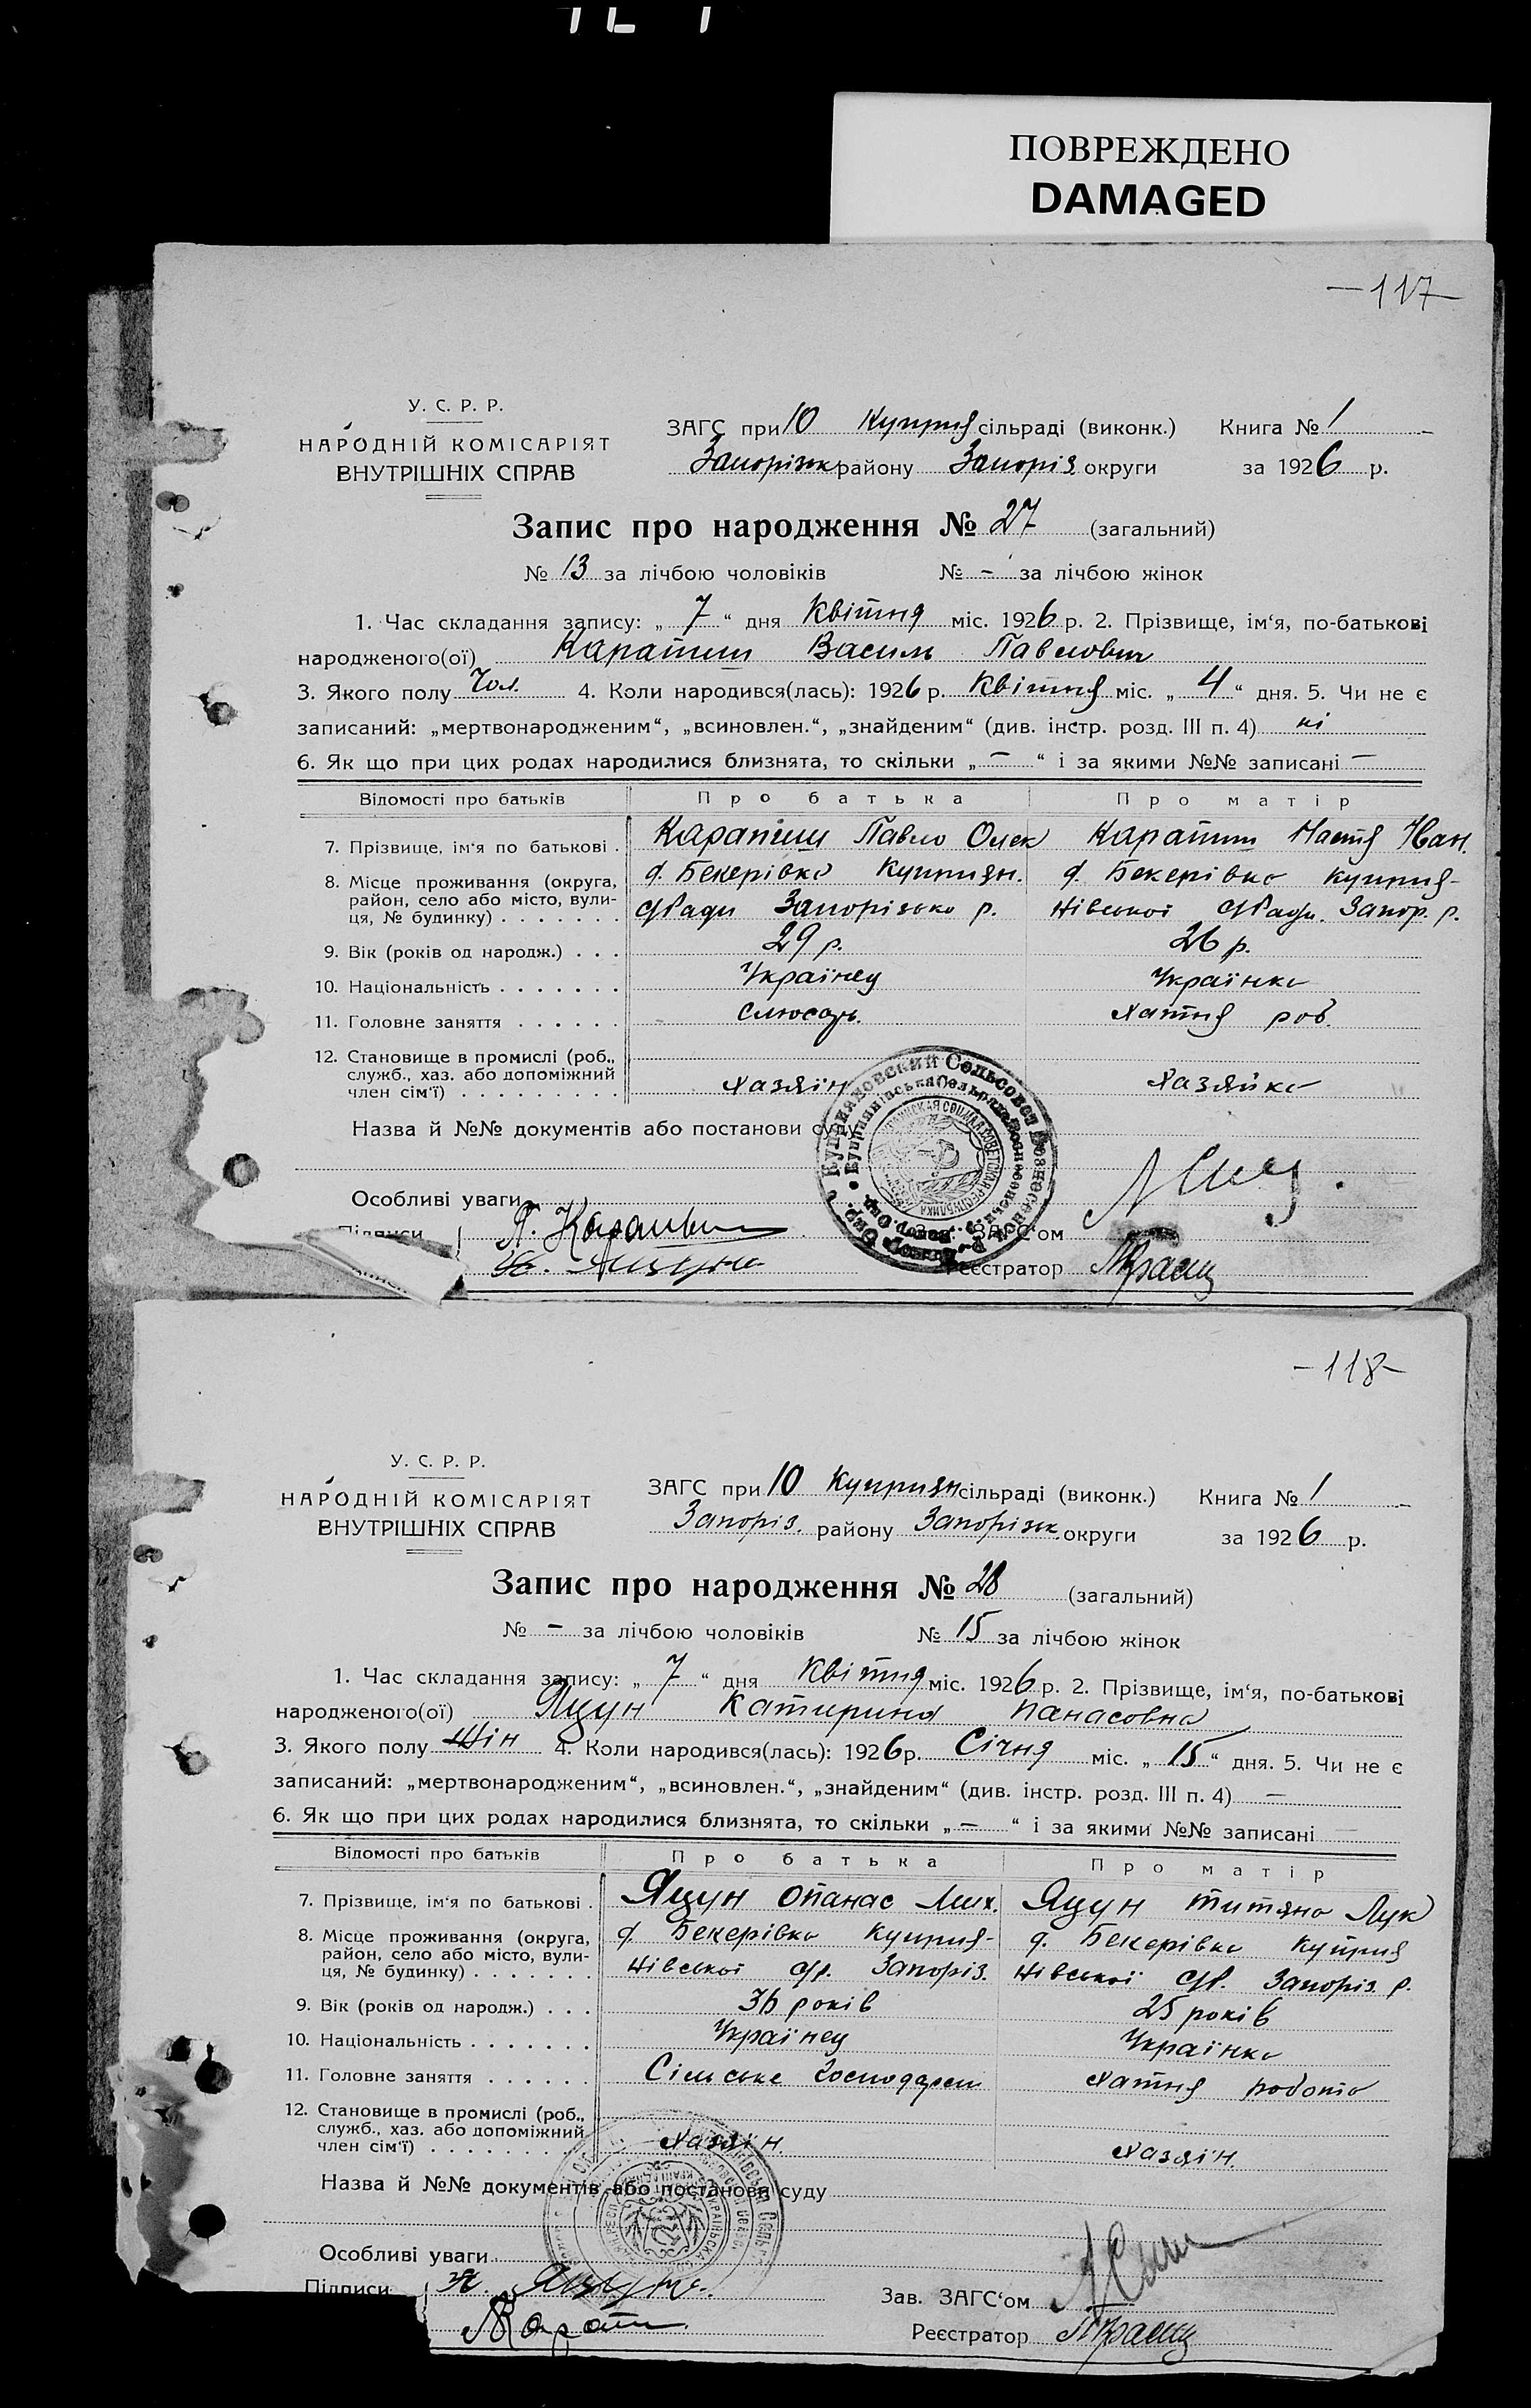 ПОВРЕЖДЕНО
DAMAGED
—117—
У. С. Р. Р.
НАРОДНІЙ КОМІСАРІЯТ
ВНУТРІШНІХ СПРАВ
ЗАГС при 10 Куприя сільраді (виконк.) Книга № 1
Запоріжк району Запоріз округи за 1926 р.
Запис про народження № 27 (загальний)
№ 13 за лічбою чоловіків № - за лічбою жінок
1. Час складання запису: „ 7 “ дня Квітня міс. 1926 р. 2. Прізвище, ім‘я, по-батькові
народженого(ої) Карапиш Василь Павлович
3. Якого полу Чол. 4. Коли народився(лась): 1926 р. Квітня міс. „ 4 “ дня. 5. Чи не є
записаний: „мертвонародженим“, „всиновлен.“, „знайденим“ (див. інстр. розд. III п. 4) ні
6. Як що при цих родах народилися близнята, то скільки „ — “ і за якими №№ записані —
Відомості про батьків Про батька Про матір
7. Прізвище, ім‘я по батькові . Карапиш Павло Олек Карапиш Настя Іван.
8. Місце проживання (округа, район, село або місто, вули- ця, № будинку) . . . . . . .
д. Бекерівка Куприян. д. Бекерівка Куприя-
с/Ради Запорізько р. нівської с/Ради. Запор. р.
9. Вік (років од народж.) . . . 29 р. 26 р.
10. Національність . . . . . . . Українец Українка
11. Головне заняття . . . . . . Слюсарь. Хатня роб.
12. Становище в промислі (роб., служб., хаз. або допоміжний член сім‘ї) . . . . . . . . . Хазяїн Хазяйка
Назва й №№ документів або постанови суду
Особливі уваги
Підписи П. Карапиш ЗАГС‘ом
Реєстратор
Куприяновский Сельсовет
—118—
У. С. Р. Р.
НАРОДНІЙ КОМІСАРІЯТ
ВНУТРІШНІХ СПРАВ
ЗАГС при 10 Куприян сільраді (виконк.) Книга № 1
Запоріз. району Запоріжк. округи за 1926 р.
Запис про народження № 28 (загальний)
№ - за лічбою чоловіків № 15 за лічбою жінок
1. Час складання запису: „ 7 “ дня Квітня міс. 1926 р. 2. Прізвище, ім‘я, по-батькові
народженого(ої) Яцун Катирина Панасовна
3. Якого полу Жін 4. Коли народився(лась): 1926 р. Січня міс. „ 15 “ дня. 5. Чи не є
записаний: „мертвонародженим“, „всиновлен.“, „знайденим“ (див. інстр. розд. III п. 4) —
6. Як що при цих родах народилися близнята, то скільки „ — “ і за якими №№ записані
Відомості про батьків Про батька Про матір
7. Прізвище, ім‘я по батькові . Яцун Опанас Мих. Яцун Титяна Лук
8. Місце проживання (округа, район, село або місто, вули- ця, № будинку) . . . . . . .
д. Бекерівка Куприя- д. Бекерівка Куприя
нівської с/р. Запоріз. нівської с/р. Запоріз. р.
9. Вік (років од народж.) . . . 36 років 25 років
10. Національність . . . . . . . Українец Українка
11. Головне заняття . . . . . . Сільське господарст Хатня робота
12. Становище в промислі (роб., служб., хаз. або допоміжний член сім‘ї) . . . . . . . . . Хазяїн. Хазяїн.
Назва й №№ документів або постанови суду
Особливі уваги
Підписи Зав. ЗАГС‘ом
Реєстратор